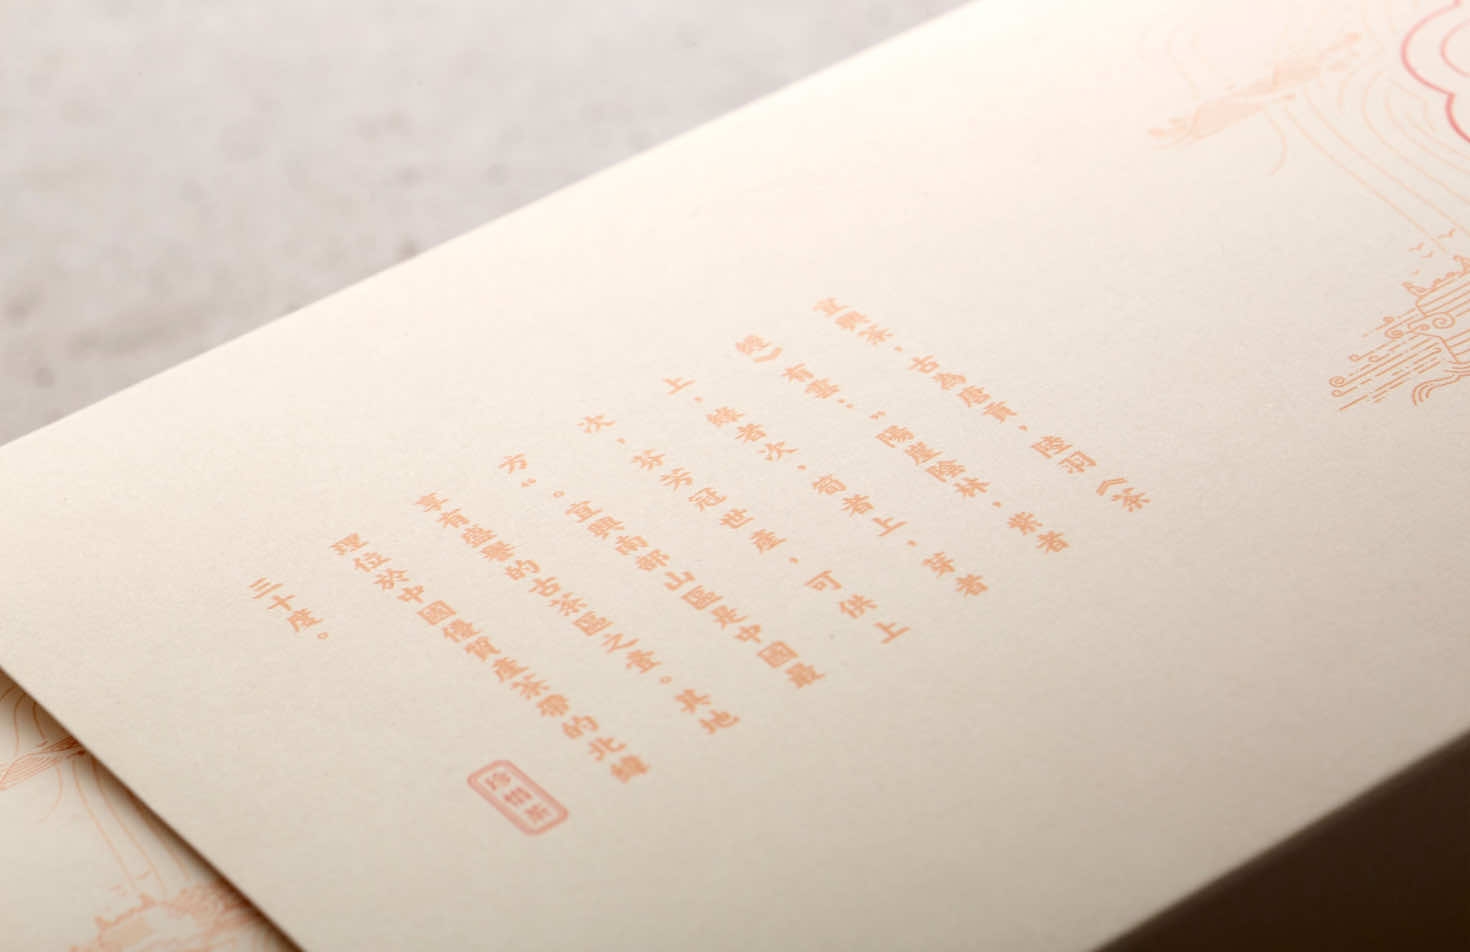 宜興茶，古為唐貢，陸羽《茶
經》有雲：“陽崖陰林，紫者
上，綠者次，筍者上，芽者
次，芬芳冠世產，可供上
方”。宜興南部山區是中國最
享有盛譽的古茶區之壹。其地
理位於中國優質產茶帶的北緯
三十度。
珍惜茶